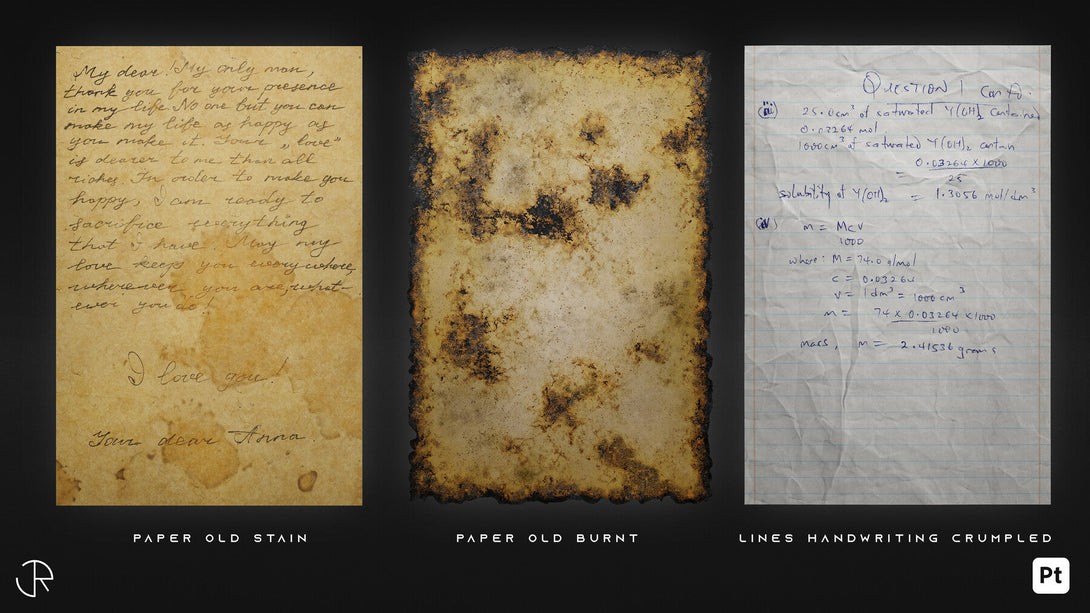 My dear! My only man,
thank you for your presence
in my life. No one but you can
make my life as happy as
you make it. Your „love"
is dearer to me than all
riches. In order to make you
happy, I am ready to
sacrifice everything
that i have. May my
love keeps you everywhere,
wherever you are, what-
ever you do!
I love you!
Your dear Anna.
QUESTION 1 Con
(iii) 25.0cm³ of saturated Y(OH)₂ contained
0.03264 mol
1000cm³ of saturated Y(OH)₂ contain
= 0.03264 × 1000
25
solubility of Y(OH)₂ = 1.3056 mol/dm³
(iv) m = MCV
1000
where: M = 74.0 g/mol
C = 0.03264
V = 1dm³ = 1000cm³
m = 74 × 0.03264 × 1000
1000
mass, m = 2.41536 grams
PAPER OLD STAIN
PAPER OLD BURNT
LINES HANDWRITING CRUMPLED
JR
Pt